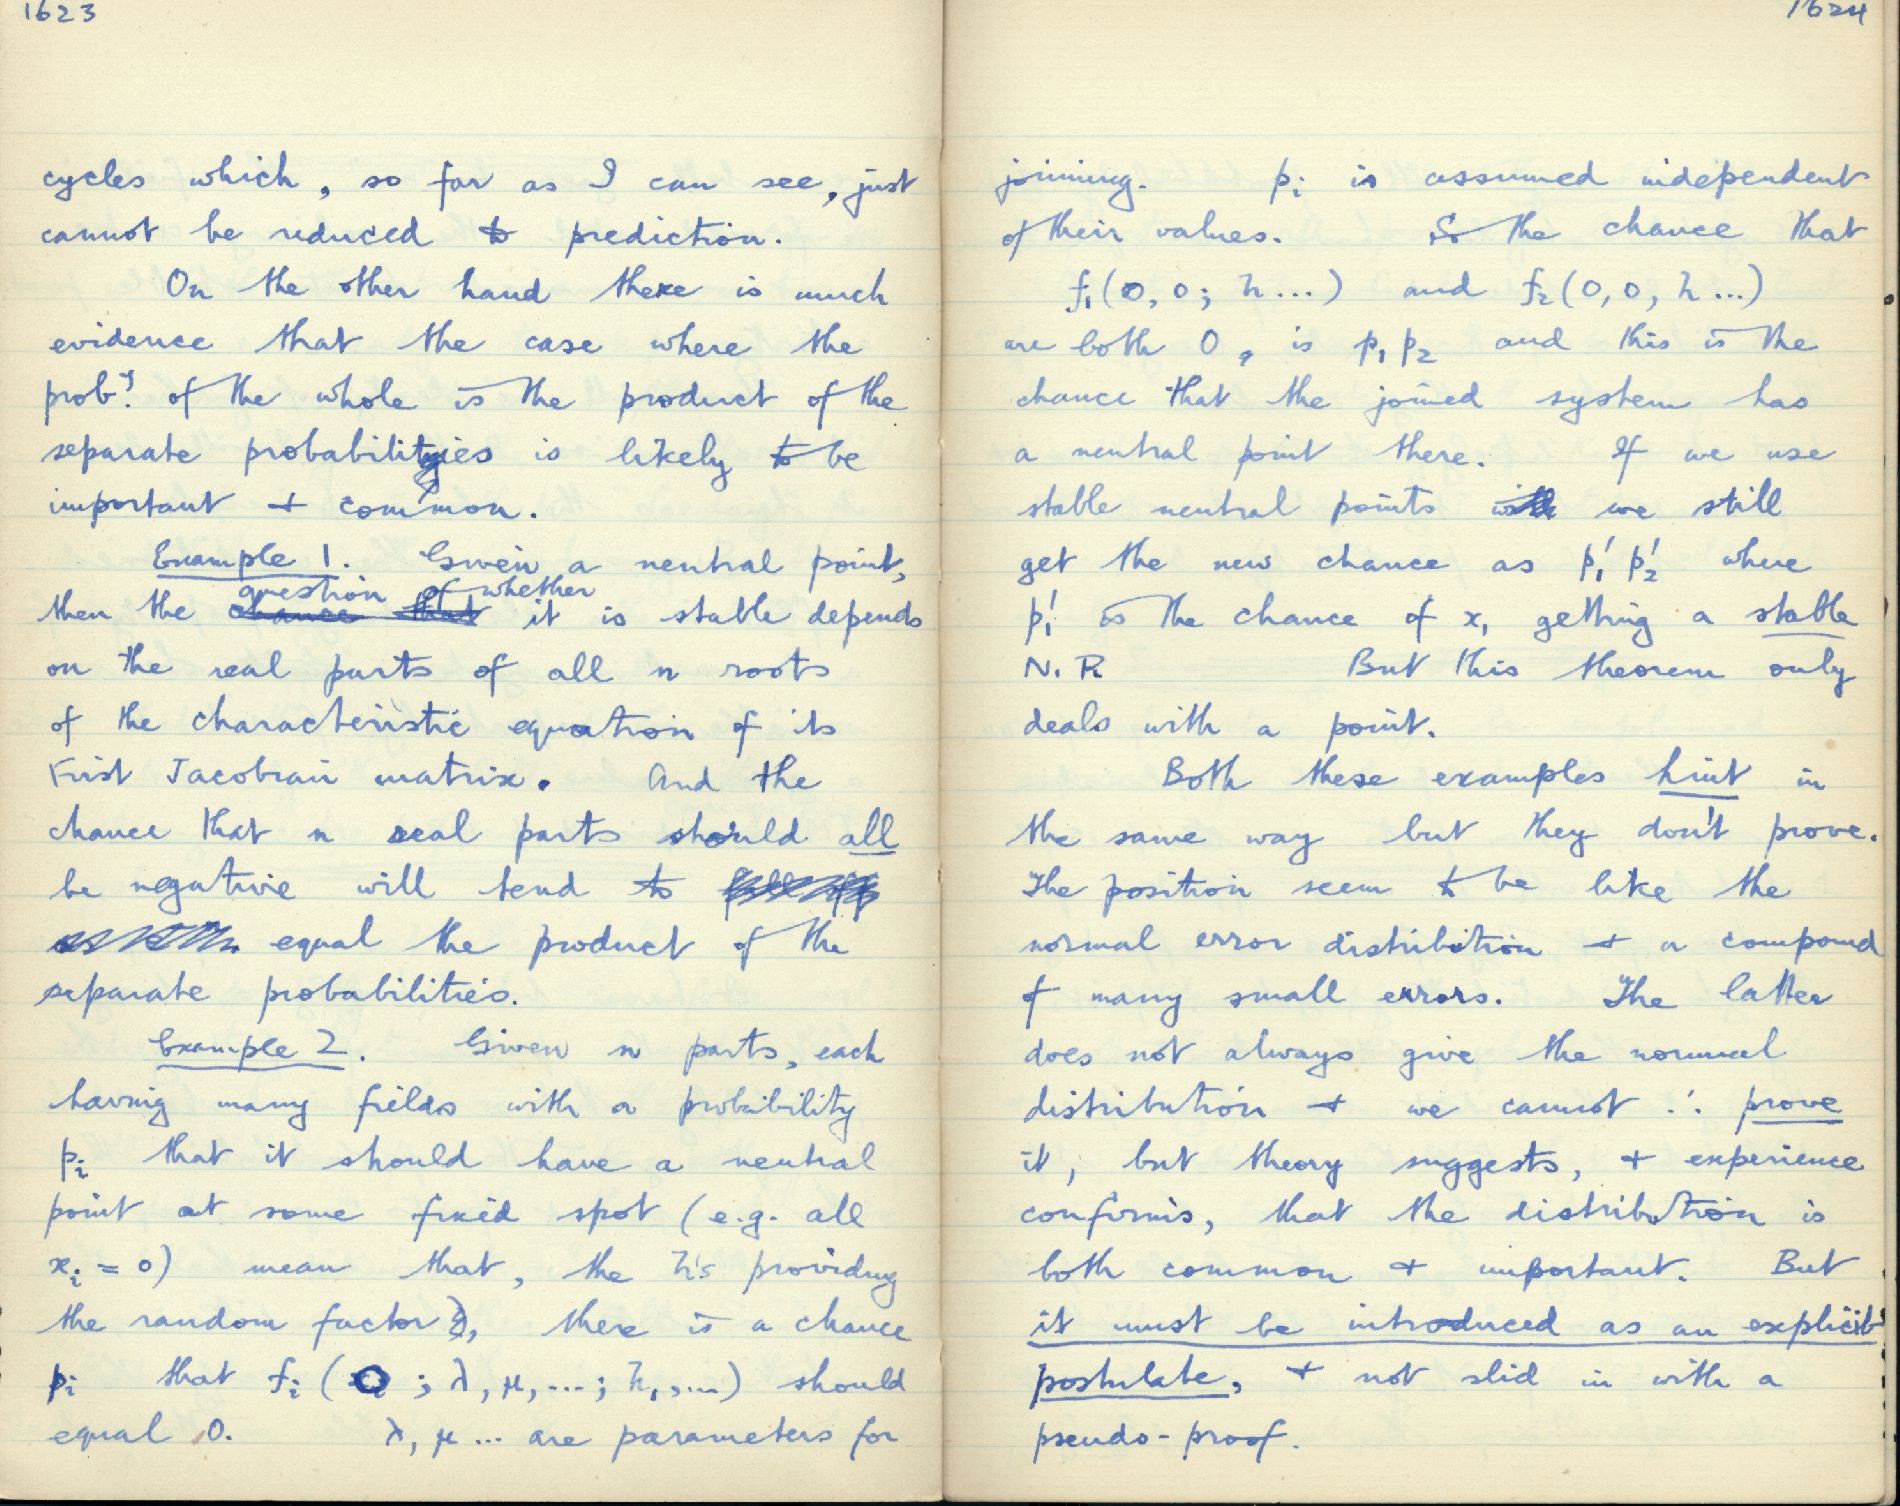 1623
cycles which, so far as I can see, just
cannot be reduced to prediction.
On the other hand there is much
evidence that the case where the
prob.y of the whole is the product of the
separate probabilities is likely to be
important + common.
Example 1. Given a neutral point,
question of whether
then the chance that it is stable depends
on the real parts of all n roots
of the characteristic equation of its
First Jacobian matrix. And the
chance that n real parts should all
be negative will tend to
equal the product of the
separate probabilities.
Example 2. Given n parts, each
having many fields with a probability
pi that it should have a neutral
point at some fixed spot (e.g. all
xi = 0) mean that, the h's providing
the random factor, there is a chance
pi that fi (0 ; λ, μ, ... ; h1, ...) should
equal 0. λ, μ ... are parameters for
1624
joining. pi is assumed independent
of their values. So the chance that
f1(0, 0; h...) and f2(0, 0, h...)
are both 0, is p1 p2 and this is the
chance that the joined system has
a neutral point there. If we use
stable neutral points we still
get the new chance as p1' p2' where
p1' is the chance of x1 getting a stable
N. P. But this theorem only
deals with a point.
Both these examples hint in
the same way but they don't prove.
The position seem to be like the
normal error distribution + a compound
of many small errors. The latter
does not always give the normal
distribution + we cannot ∴ prove
it, but theory suggests, + experience
confirms, that the distribution is
both common + important. But
it must be introduced as an explicit
postulate, + not slid in with a
pseudo-proof.